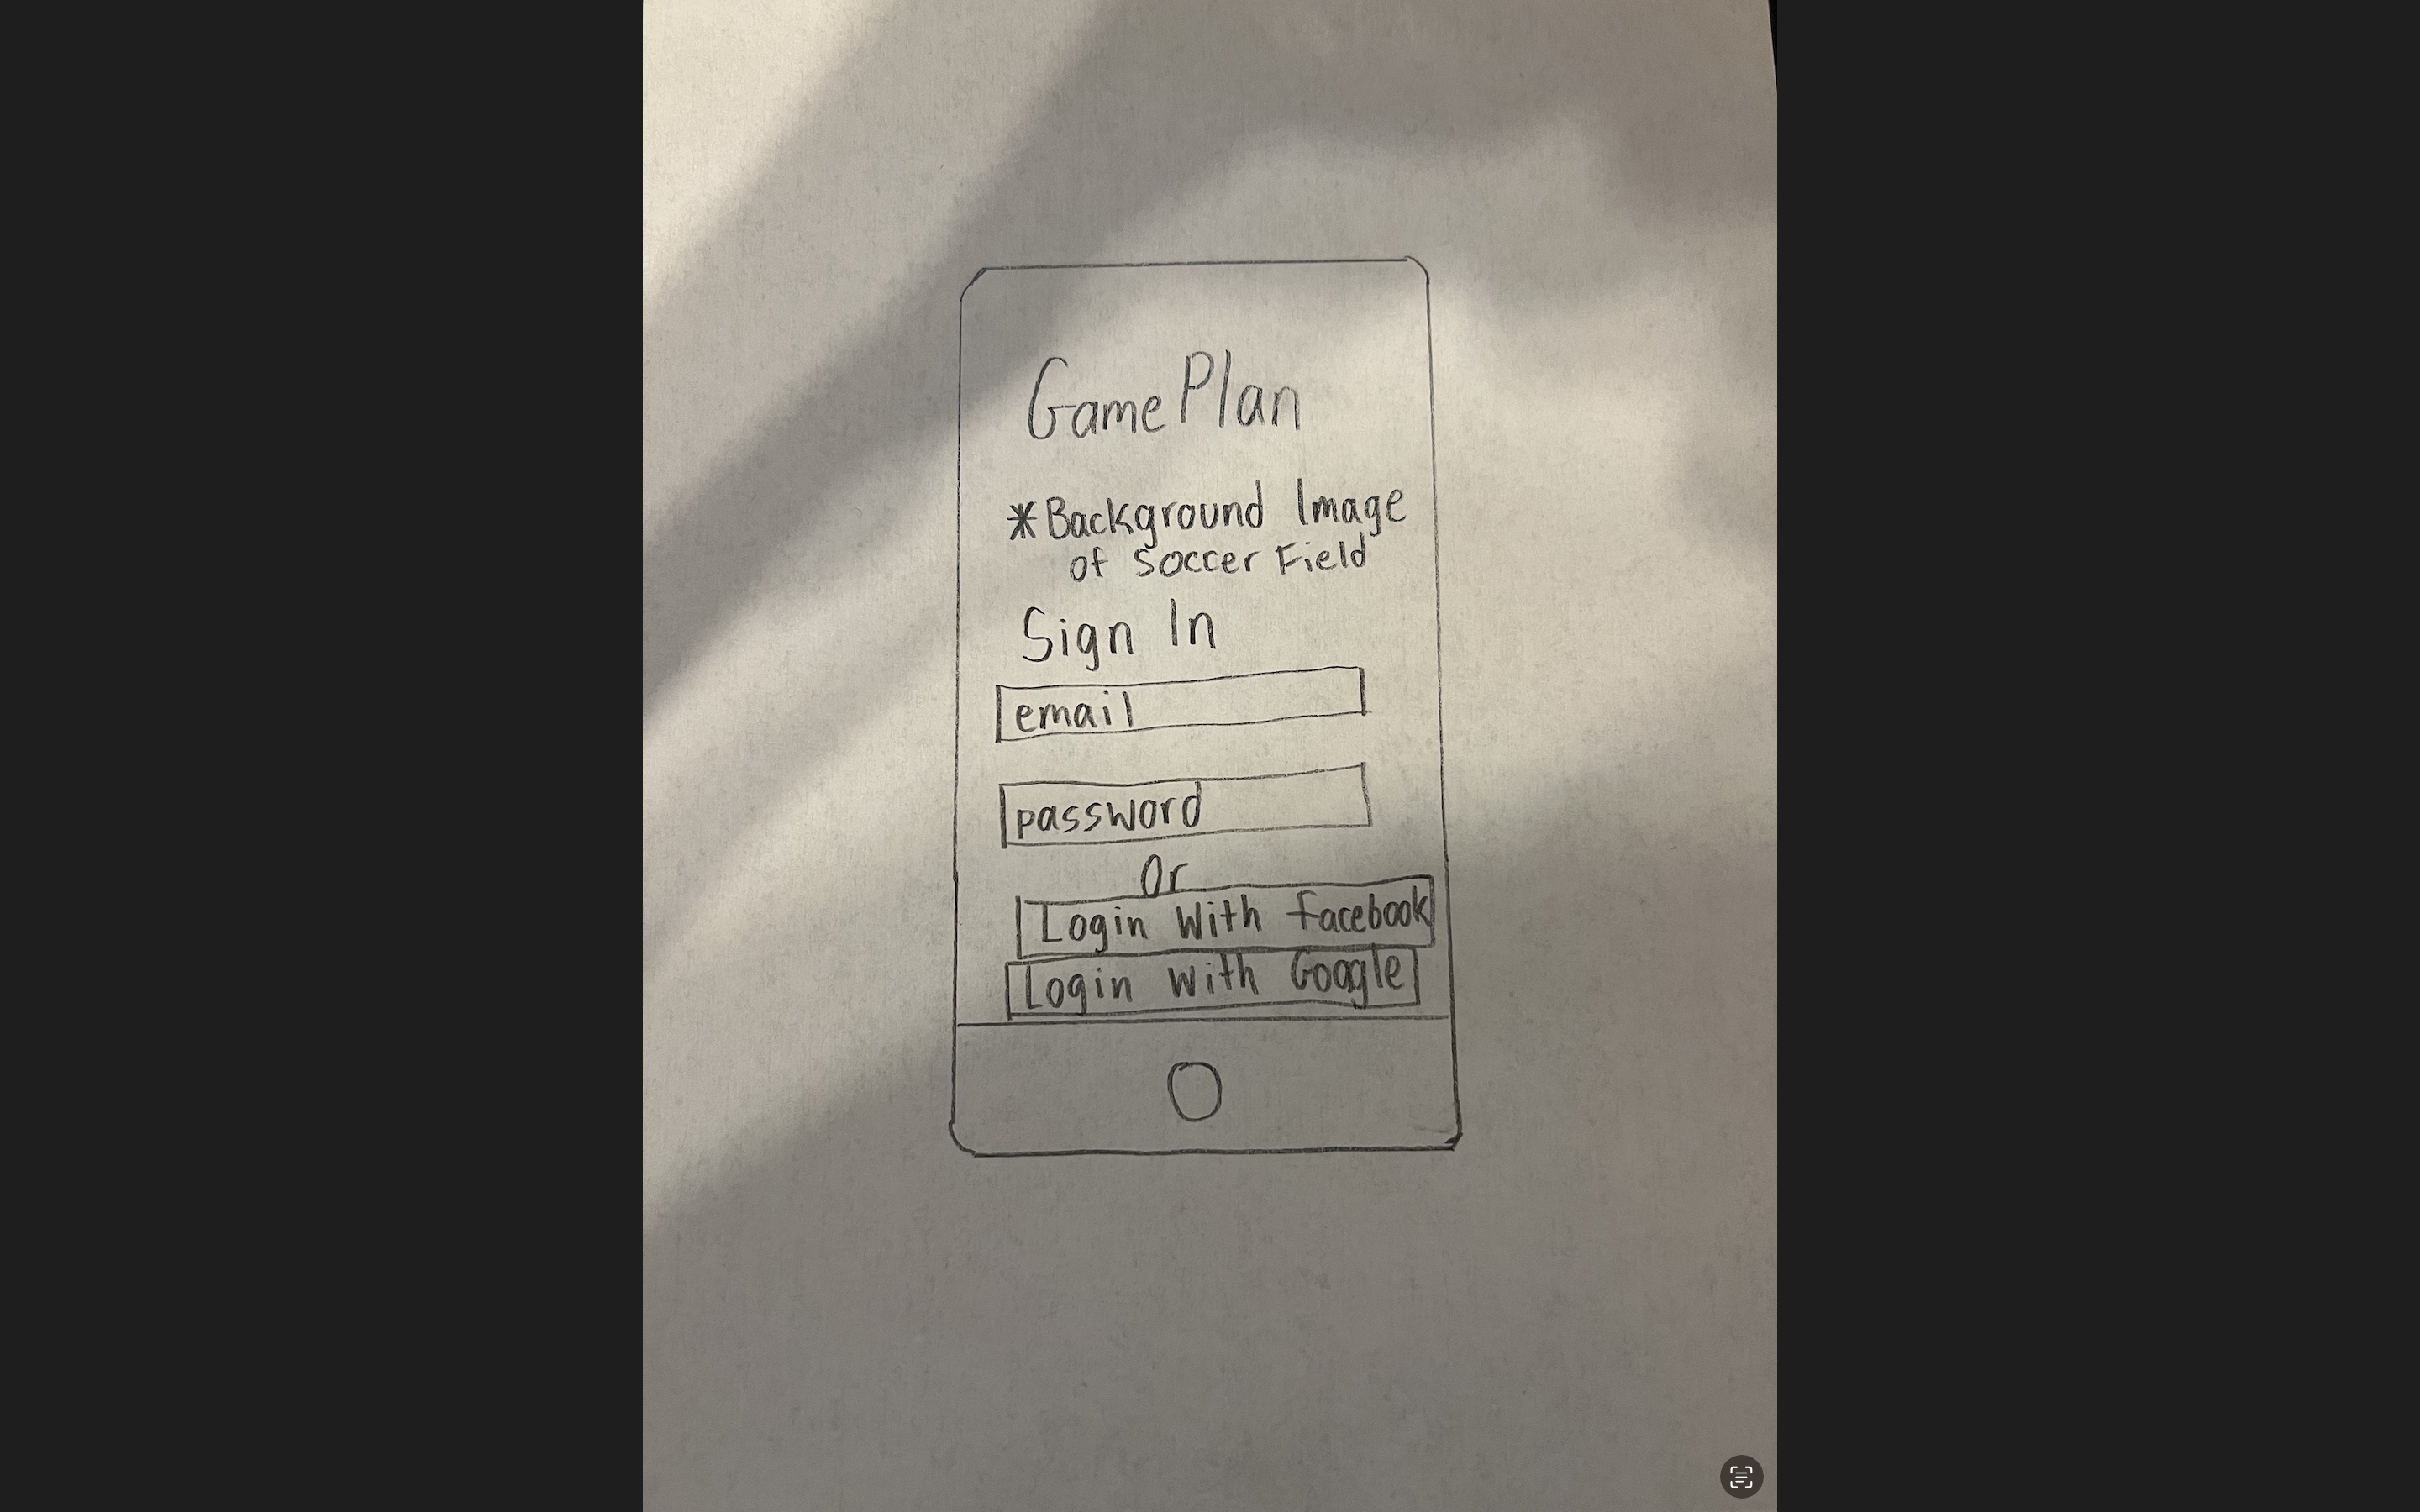 Game Plan
*Background Image
of Soccer Field
Sign In
email
password
Or
Login With Facebook
Login With Google